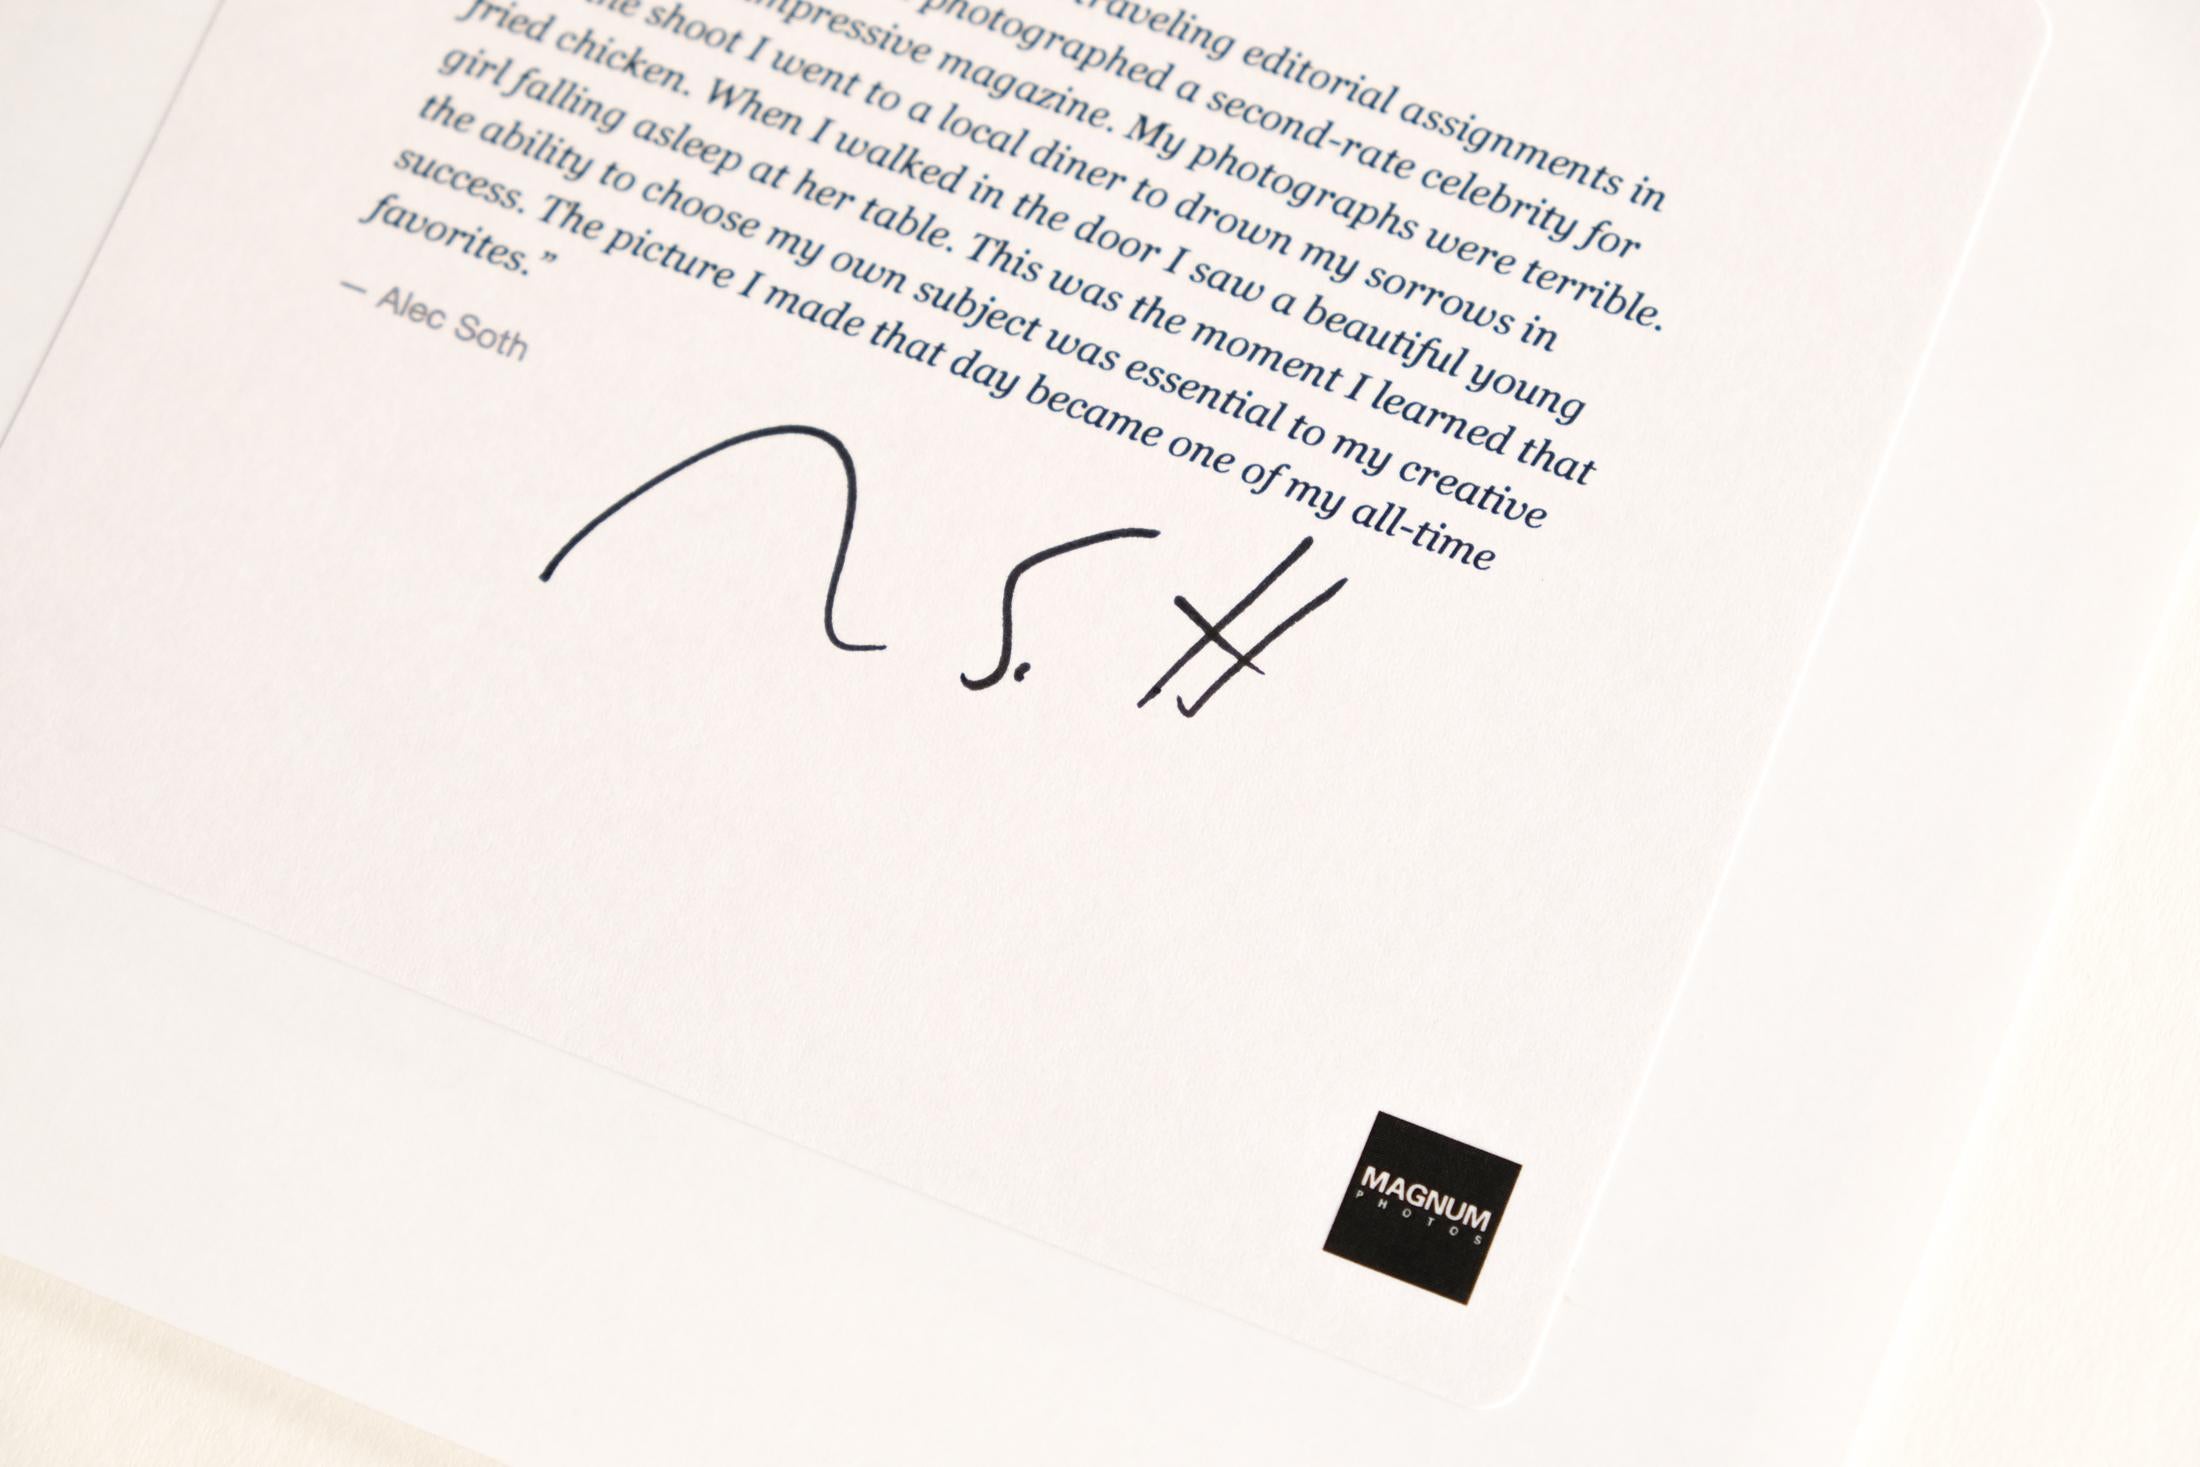 traveling editorial assignments in
photographed a second-rate celebrity for
impressive magazine. My photographs were terrible.
the shoot I went to a local diner to drown my sorrows in
fried chicken. When I walked in the door I saw a beautiful young
girl falling asleep at her table. This was the moment I learned that
the ability to choose my own subject was essential to my creative
success. The picture I made that day became one of my all-time
favorites.”
— Alec Soth
MAGNUM
PHOTOS